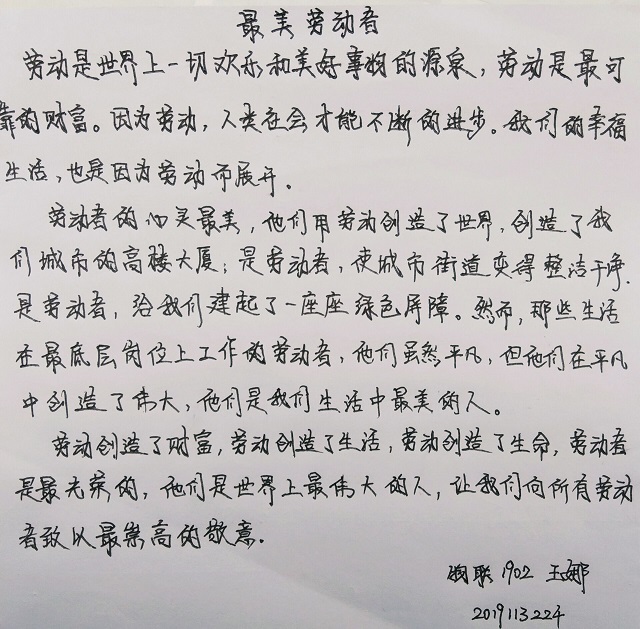 最美劳动者
劳动是世界上一切欢乐和美好事物的源泉，劳动是最可
靠的财富。因为劳动，人类社会才能不断的进步。我们的幸福
生活，也是因为劳动而展开。
劳动者的心灵最美，他们用劳动创造了世界，创造了我
们城市的高楼大厦；是劳动者，使城市街道变得整洁干净，
是劳动者，给我们建起了一座座绿色屏障。然而，那些生活
在最底层岗位上工作的劳动者，他们虽然平凡，但他们在平凡
中创造了伟大，他们是我们生活中最美的人。
劳动创造了财富，劳动创造了生活，劳动创造了生命，劳动者
是最光荣的，他们是世界上最伟大的人，让我们向所有劳动
者致以最崇高的敬意。
联1902 王娜
2019113224